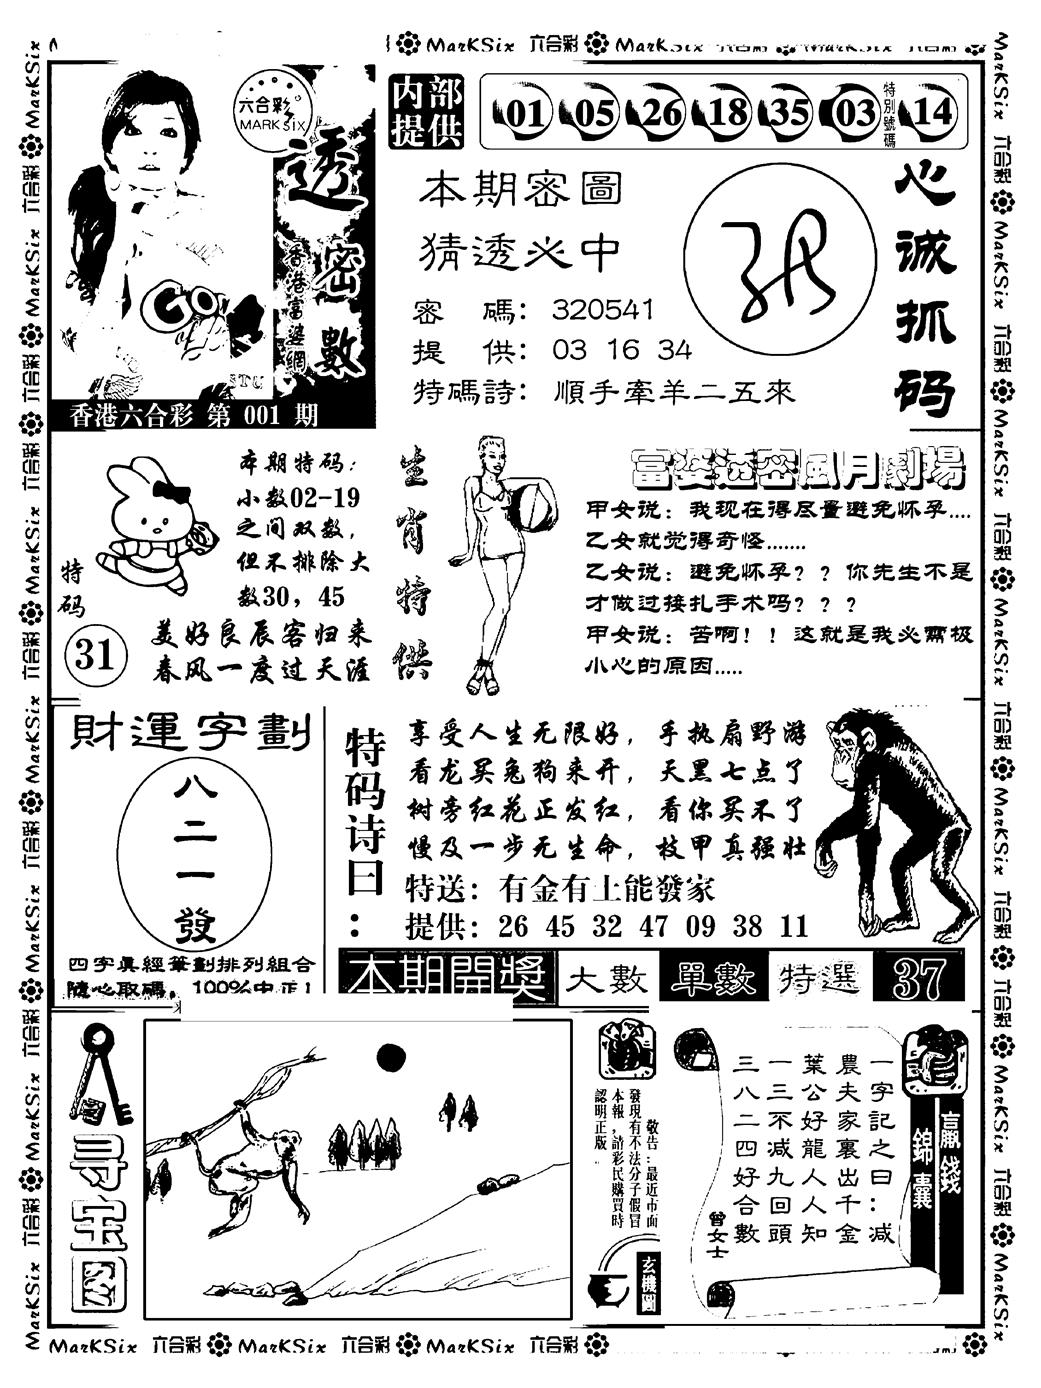 MarkSix 六合彩 MarkSix 六合彩
六合彩
MARK SIX
透密數
香港富婆網
GO
香港六合彩 第 001 期
内部
提供
01 05 26 18 35 03 特別號碼 14
本期密圖
猜透必中
密 碼: 320541
提 供: 03 16 34
特碼詩: 順手牽羊二五來
心诚抓码
本期特码:
小数02-19
之间双数,
但不排除大
数30, 45
特码
31
美好良辰客归来
春风一度过天涯
生肖特供
富婆透密風月劇場
甲女说: 我现在得尽量避免怀孕....
乙女就觉得奇怪.......
乙女说: 避免怀孕? ? 你先生不是
才做过接扎手术吗? ? ?
甲女说: 苦啊! ! 这就是我必需极
小心的原因.....
財運字劃
八
二
一
發
四字真經筆劃排列組合
隨心取碼, 100%中正!
特码诗曰:
享受人生无限好, 手执扇野游
看龙买兔狗来开, 天黑七点了
树旁红花正发红, 看你买不了
慢及一步无生命, 枝甲真强壮
特送: 有金有土能發家
提供: 26 45 32 47 09 38 11
本期開獎 大數 單數 特選 37
寻宝图
敬告:最近市面
發現有不法分子假冒
本報,請彩民購買時
認明正版.
玄機圖
贏錢
錦囊
一字記之曰:减
農夫家裏出千金
葉公好龍人人知
一三不减九回頭
三八二四好合數
曾女士
MarkSix 六合彩 MarkSix 六合彩 MarkSix 六合彩